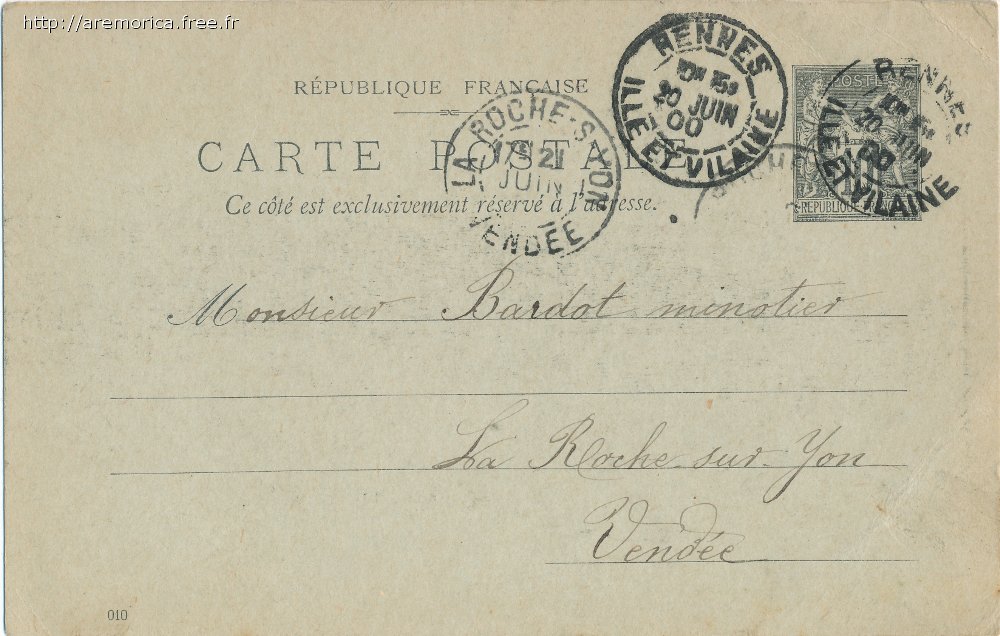 http://aremorica.free.fr
RÉPUBLIQUE FRANÇAISE
CARTE POSTALE
Ce côté est exclusivement réservé à l'adresse.
LA ROCHE-S-YON
21
JUIN
VENDÉE
RENNES
20 JUIN
00
ILLE ET VILAINE
POSTES
RENNES
20 JUIN
00
ILLE ET VILAINE
REPUBLIQUE FRANÇAISE
Monsieur Bardot minotier
La Roche-sur-Yon
Vendée
010